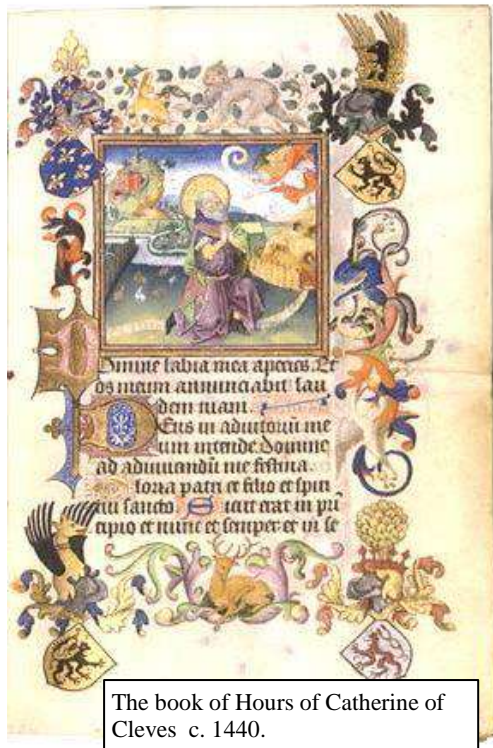 Domine labia mea aperies. Et
os meum annunciabit lau
dem tuam.
Deus in adiutoriū me
um intende. Domine
ad adiuuandū me festina.
Gloria patri et filio et spiri
tui sancto. Sicut erat in prī
cipio et nunc et semper et in se
The book of Hours of Catherine of
Cleves c. 1440.